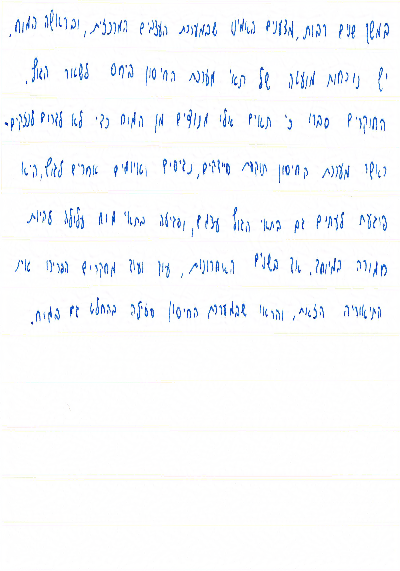 במשך שנים רבות, מדענים האמינו שבמערכת העצבים המרכזית, ובראשה המוח,
יש נוכחות מועטה של תאי מערכת החיסון ביחס לשאר הגוף.
החוקרים סברו כי תאים אלו מנועים מן המוח כדי לא לגרום לנזקים-
כאשר מערכת החיסון תוקפת חיידקים, נגיפים ואיומים אחרים לגוף, היא
פוגעת לעתים גם בתאי הגוף עצמם, ופגיעה בתאי מוח עלולה להיות
חמורה במיוחד. אך בשנים האחרונות, עוד ועוד מחקרים הפריכו את
התיאוריה הזאת, והראו שמערכת החיסון פעילה בהחלט גם במוח.